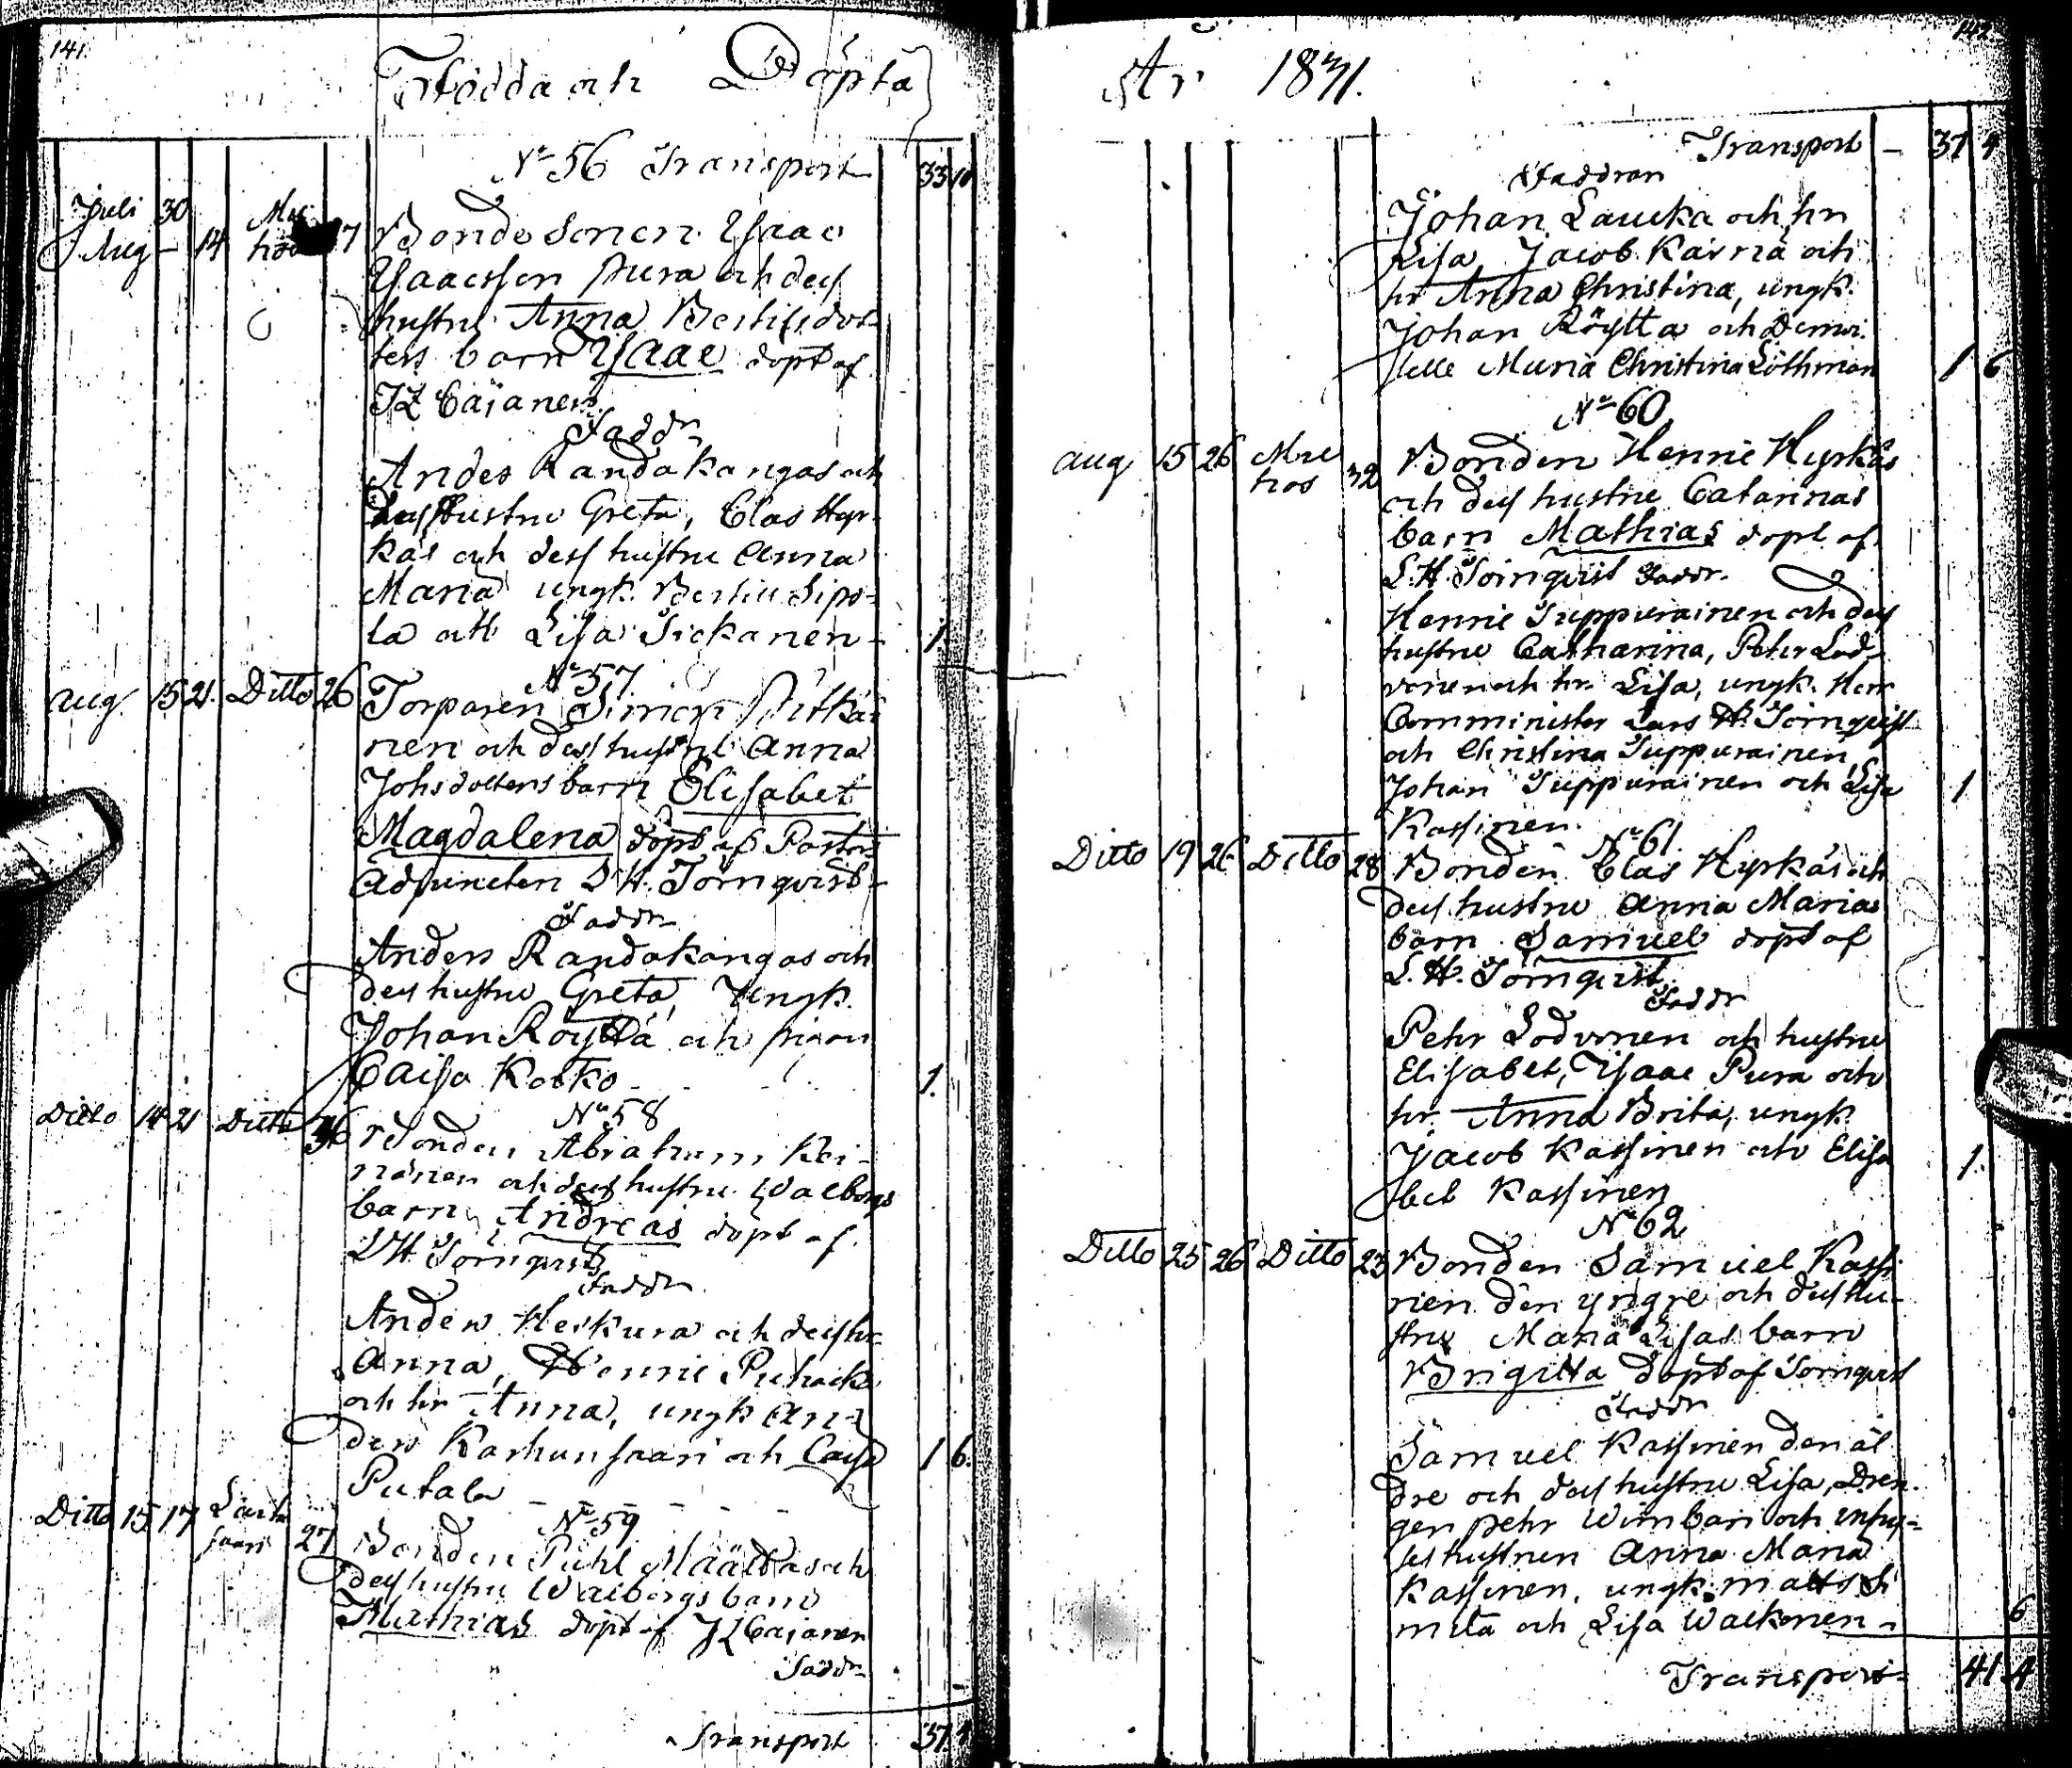 141.
Födda och Döpta
No 56 Transport 33 10
Juli 30
Aug - 14 Mu
hos 7 Bondesonen Isaac
Isaacsson Pura och dess
hustru Anna Bertilsdot-
ters barn Isaac döpt af
JL Cajanen.
Faddr
Andes Randakangas och
dess Hustru Greta, Clas Hyr-
käs och dess hustru Anna
Maria ungk. Bertill Sipo-
la och Lisa Sickanen - 1.
No 57.
Aug. 15 21. Ditto 26 Torparen Simon Pitkä-
nen och dess hustru Anna
Johsdotters barn Elisabet
Magdalena döpt af Pastors
Adjuncten L H. Törnqvist -
Faddr
Anders Randakangas och
dess hustru Greta, Ungk.
Johan Röyttä och pigan
Caisa Kotko - 1.
No 58
Ditto 14 21 Ditto 36 Bonden Abraham Kei-
nänen och dess hustru Walborgs
barn Andreas döpt af
L H Törnqvist
Faddr
Anders Heikura och dess hr
Anna, Henric Puhacka
och hr Anna, ungk An-
ders Karhunsaari och Caisa 1 6.
Putala - - - - -
No 59
Ditto 15 17 Laita
saari 27 Bonden Pehl Määtta och
dess hustru Walborgs barn
Mathias döpt af J L Cajanen
Faddr
Transport 37 4
142.
År 1841.
Transport - 37 4
Faddran
Johan Laucka och hr
Lisa, Jacob Kärnä och
hr Anna Christina, ungk.
Johan Röyttä och Demoi-
selle Maria Christina Löthman 1 6
No 60.
Aug 15 26 Mu
hos 32 Bonden Henric Hyrkäs
och dess hustru Catarinas
barn Mathias döpt af
L. H. Törnqvist Faddr.
Henric Tuppurainen och dess
hustru Catharina, Pehr Lod-
vonen och hr. Lisa, ungk. Herr
Comminister Lars H. Törnqvist
och Christina Tuppurainen,
Johan Tuppurainen och Lisa 1
Kassinen.
No 61.
Ditto 19 26 Ditto 28 Bonden Clas Hyrkäs och
dess hustru Anna Marias
barn Samuel döpt af
L. H. Törnqvist.
Faddr
Pehr Lodvonen och hustru
Elisabet, Isaac Pura och
hr. Anna Brita, ungk.
Jacob Kassinen och Elisa 1.
bet Kassinen
No 62
Ditto 25 26 Ditto 23 Bonden Samuel Kassi
nen den yngre och dess hu-
stru Maria Lisas barn
Brigitta döpt af Törnqvist
Faddr
Samuel Kassinen den äl
dre och dess hustru Lisa, Dren-
gen Pehr Wimbari och inhy-
ses hustrun Anna Maria
Kassinen, ungk. Matts Si
milä och Lisa Walkonen - 6
Transport - 41 4